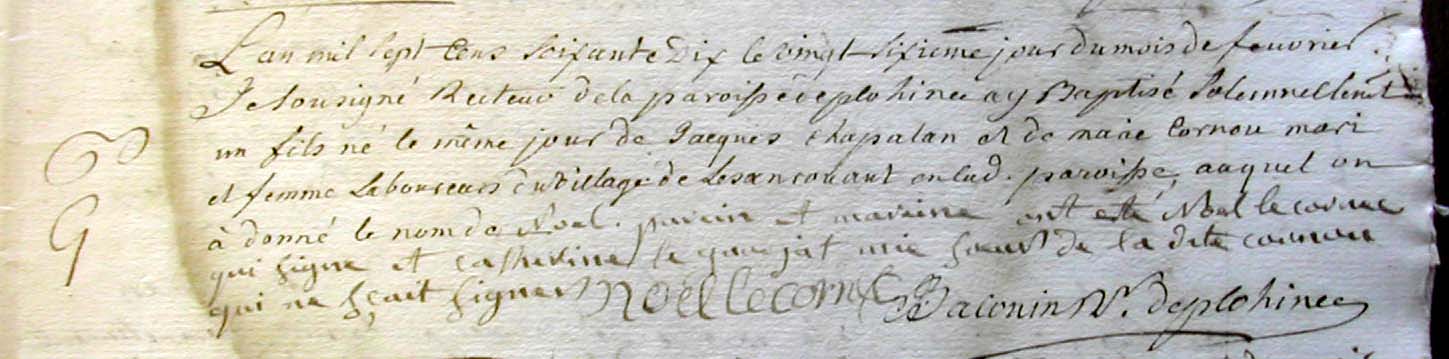 L'an mil sept Cens soixante Dix le vingt sixieme jour du mois de feuvrier.
Je sousigné Recteur de la paroisse de plohinec ay Baptisé solemnellemt
un fils né le même jour de Jacques chapalan et de marie Cornou mari
et femme Laboureurs du village de Lesancouant en lad. paroisse, auquel on
à donné le nom de Noel. parein et mareine ont eté Noel le cornec
qui signe et catherine le goujat mie soeur de la dite cornou
qui ne sçait signer Noël le cornec Baconin Rr. de plohinec